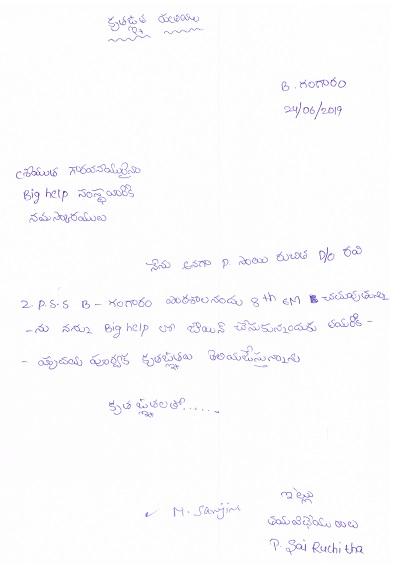 కృతజ్ఞత
B. గంగారం
24/06/2019
గౌరవనీయులైన
Big help సంస్థవారికి
నమస్కారములు
నేను అనగా P. సాయి రుచిత D/o రవి
Z.P.S.S B - గంగారం పాఠశాలనందు 8th EM చదువుతున్నా
- ను నన్ను Big help లో జాయిన్ చేసుకున్నందుకు
- హృదయ పూర్వక కృతజ్ఞతలు తెలియజేస్తున్నాను
కృతజ్ఞతలతో......
ఇట్లు
M. Sanjiv
P. Sai Ruchitha